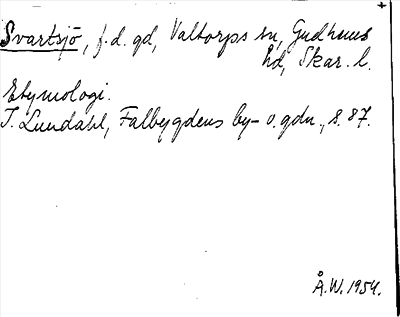 Svartsjö, f.d. gd, Valtorps sn, Gudhems
hd, Skar. l.
Etymologi.
I. Lundahl, Falbygdens by- o. gdn., s. 87.
Å.W. 1954.